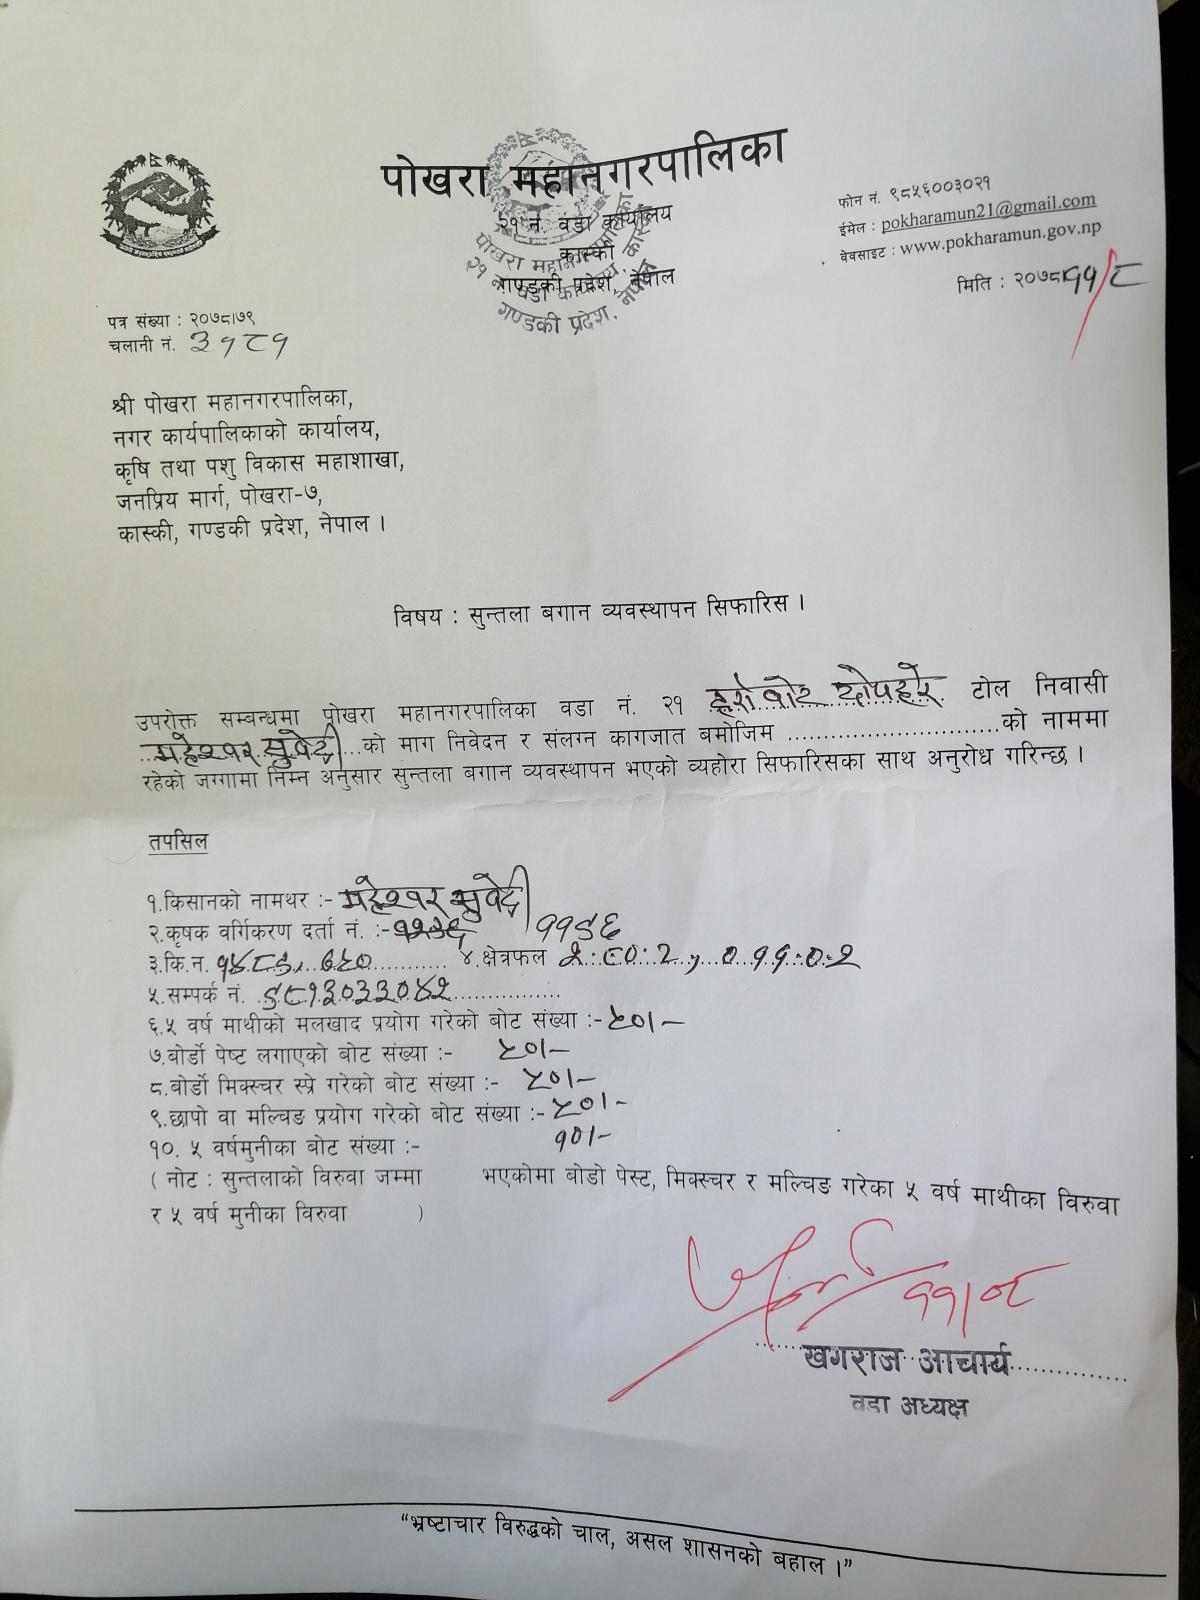 पोखरा महानगरपालिका
२१ नं. वडा कार्यालय
कास्की
गण्डकी प्रदेश, नेपाल
पोखरा महानगरपालिका
२१ नं. वडा कार्यालय, कास्की
गण्डकी प्रदेश, नेपाल
फोन नं. ९८५६००३०२१
ईमेल : pokharamun21@gmail.com
वेबसाइट : www.pokharamun.gov.np
मिति : २०७८।११/८
पत्र संख्या : २०७८।७९
चलानी नं. ३१८१
श्री पोखरा महानगरपालिका,
नगर कार्यपालिकाको कार्यालय,
कृषि तथा पशु विकास महाशाखा,
जनप्रिय मार्ग, पोखरा-७,
कास्की, गण्डकी प्रदेश, नेपाल ।
विषय : सुन्तला बगान व्यवस्थापन सिफारिस ।
उपरोक्त सम्बन्धमा पोखरा महानगरपालिका वडा नं. २१ टोल निवासी
महेश्वर सुवेदी को माग निवेदन र संलग्न कागजात बमोजिम ..............................को नाममा
रहेको जग्गामा निम्न अनुसार सुन्तला बगान व्यवस्थापन भएको व्यहोरा सिफारिसका साथ अनुरोध गरिन्छ ।
तपसिल
१.किसानको नामथर :- महेश्वर सुवेदी
२.कृषक वर्गिकरण दर्ता नं. :- ११९६
३.कि.न. १४८९, ७५० ४.क्षेत्रफल
५.सम्पर्क नं. ९८१३०३३०४२
६.५ वर्ष माथीको मलखाद प्रयोग गरेको बोट संख्या :- ५०।-
७.बोर्डो पेष्ट लगाएको बोट संख्या :- ५०।-
८.बोर्डो मिक्स्चर स्प्रे गरेको बोट संख्या :- ५०।-
९.छापो वा मल्चिङ प्रयोग गरेको बोट संख्या :- ५०।-
१०. ५ वर्षमुनीका बोट संख्या :- १०।-
( नोट : सुन्तलाको विरुवा जम्मा भएकोमा बोडो पेस्ट, मिक्स्चर र मल्चिङ गरेका ५ वर्ष माथीका विरुवा
र ५ वर्ष मुनीका विरुवा )
११।०८
खगराज आचार्य
वडा अध्यक्ष
“भ्रष्टाचार विरुद्धको चाल, असल शासनको बहाल ।”